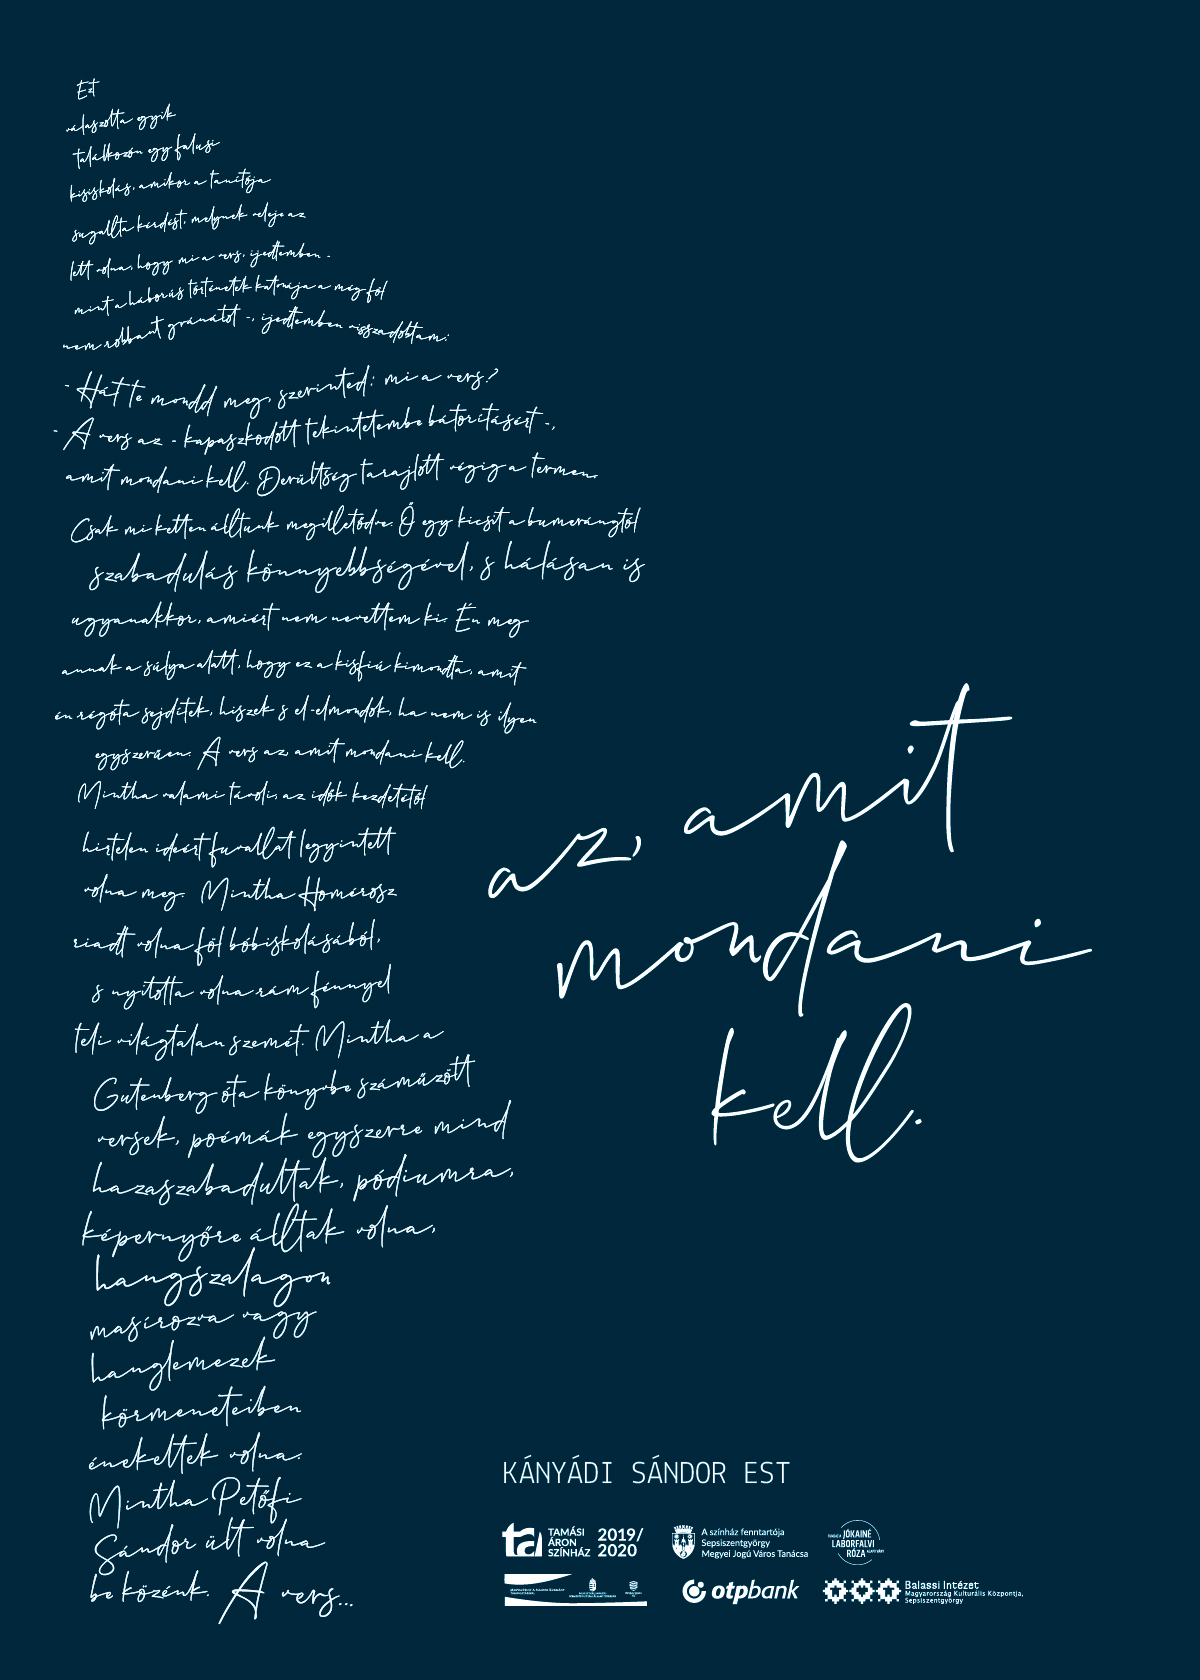 Ezt
válaszolta egyik
találkozón egy falusi
kisiskolás, amikor a tanítója
sugallta kérdést, melynek veleje az
lett volna, hogy mi a vers, ijedtemben -
mint a háborús történetek katonája a még föl
nem robbant gránátot -, ijedtemben visszadobtam:
- Hát te mondd meg, szerinted: mi a vers?
- A vers az - kapaszkodott tekintetembe bátorításért -,
amit mondani kell. Derültség tarajlott végig a termen.
Csak mi ketten álltunk megilletődve. Ő egy kicsit a bumerángtól
szabadulás könnyebbségével, s hálásan is
ugyanakkor, amiért nem nevettem ki. Én meg
annak a súlya alatt, hogy ez a kisfiú kimondta, amit
én régóta sejdítek, hiszek s el-elmondok, ha nem is ilyen
egyszerűen. A vers az, amit mondani kell.
Mintha valami távoli, az idők kezdetétől
hirtelen ideért fuvallat legyintett
volna meg. Mintha Homérosz
riadt volna föl bóbiskolásából,
s nyitotta volna rám fénnyel
teli világtalan szemét. Mintha a
Gutenberg óta könyvbe száműzött
versek, poémák egyszerre mind
hazaszabadultak, pódiumra,
képernyőre álltak volna,
hangszalagon
masírozva vagy
hanglemezek
körmeneteiben
énekeltek volna.
Mintha Petőfi
Sándor ült volna
be közénk. A vers...
az, amit
mondani
kell.
KÁNYÁDI SÁNDOR EST
ta TAMÁSI ÁRON SZÍNHÁZ 2019/2020
A színház fenntartója
Sepsiszentgyörgy
Megyei Jogú Város Tanácsa
JÓKAINÉ
LABORFALVI
RÓZA
otpbank
Balassi Intézet
Magyarország Kulturális Központja,
Sepsiszentgyörgy